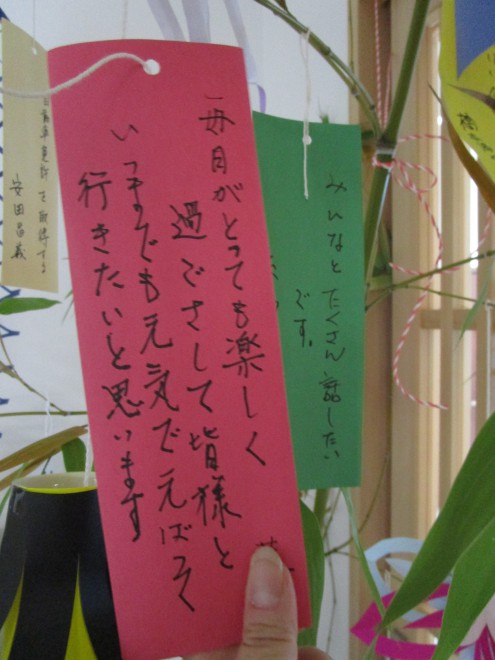 毎日がとっても楽しく
過ごさして皆様と
いつまでも元気でえばって
行きたいと思います
みんなと たくさん 話したい
です。
で取得する
安田昌義